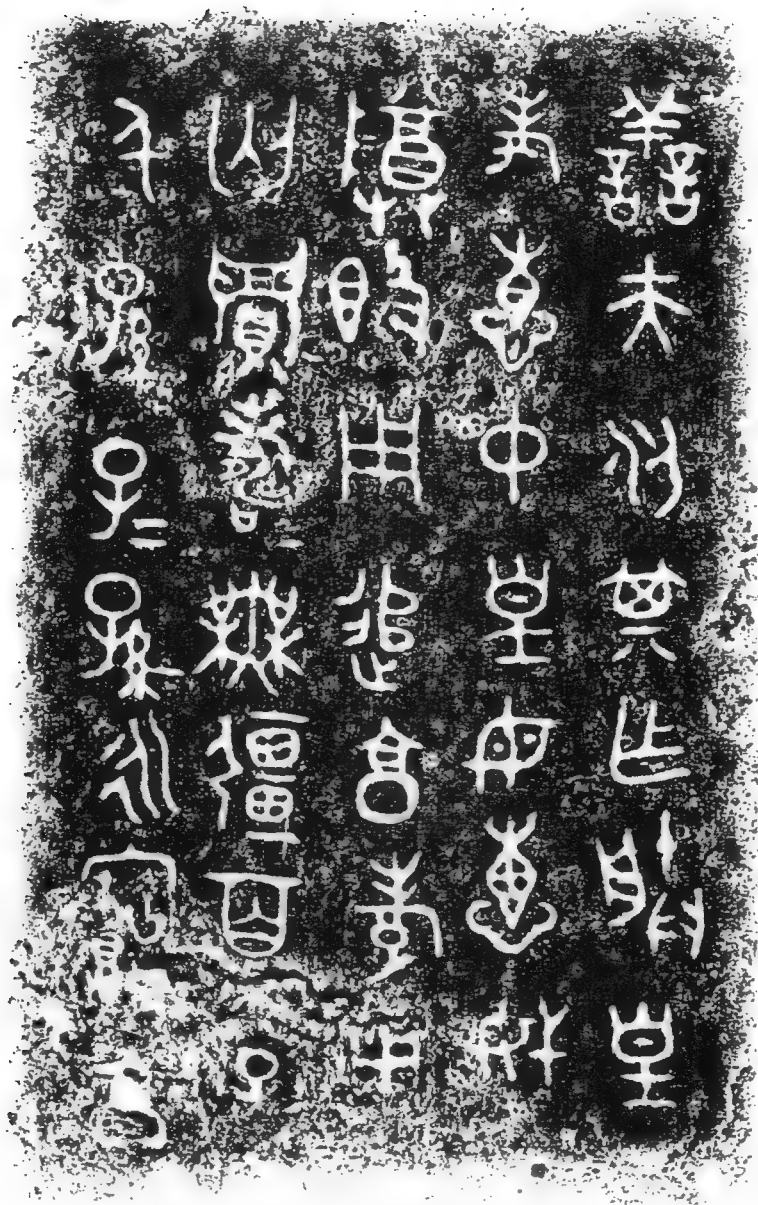 善夫梁其乍朕皇
考惠中皇母惠妣
尊簋用追享孝用
匄眉壽＝無疆百子
千孫子＝孫＝永寶用享